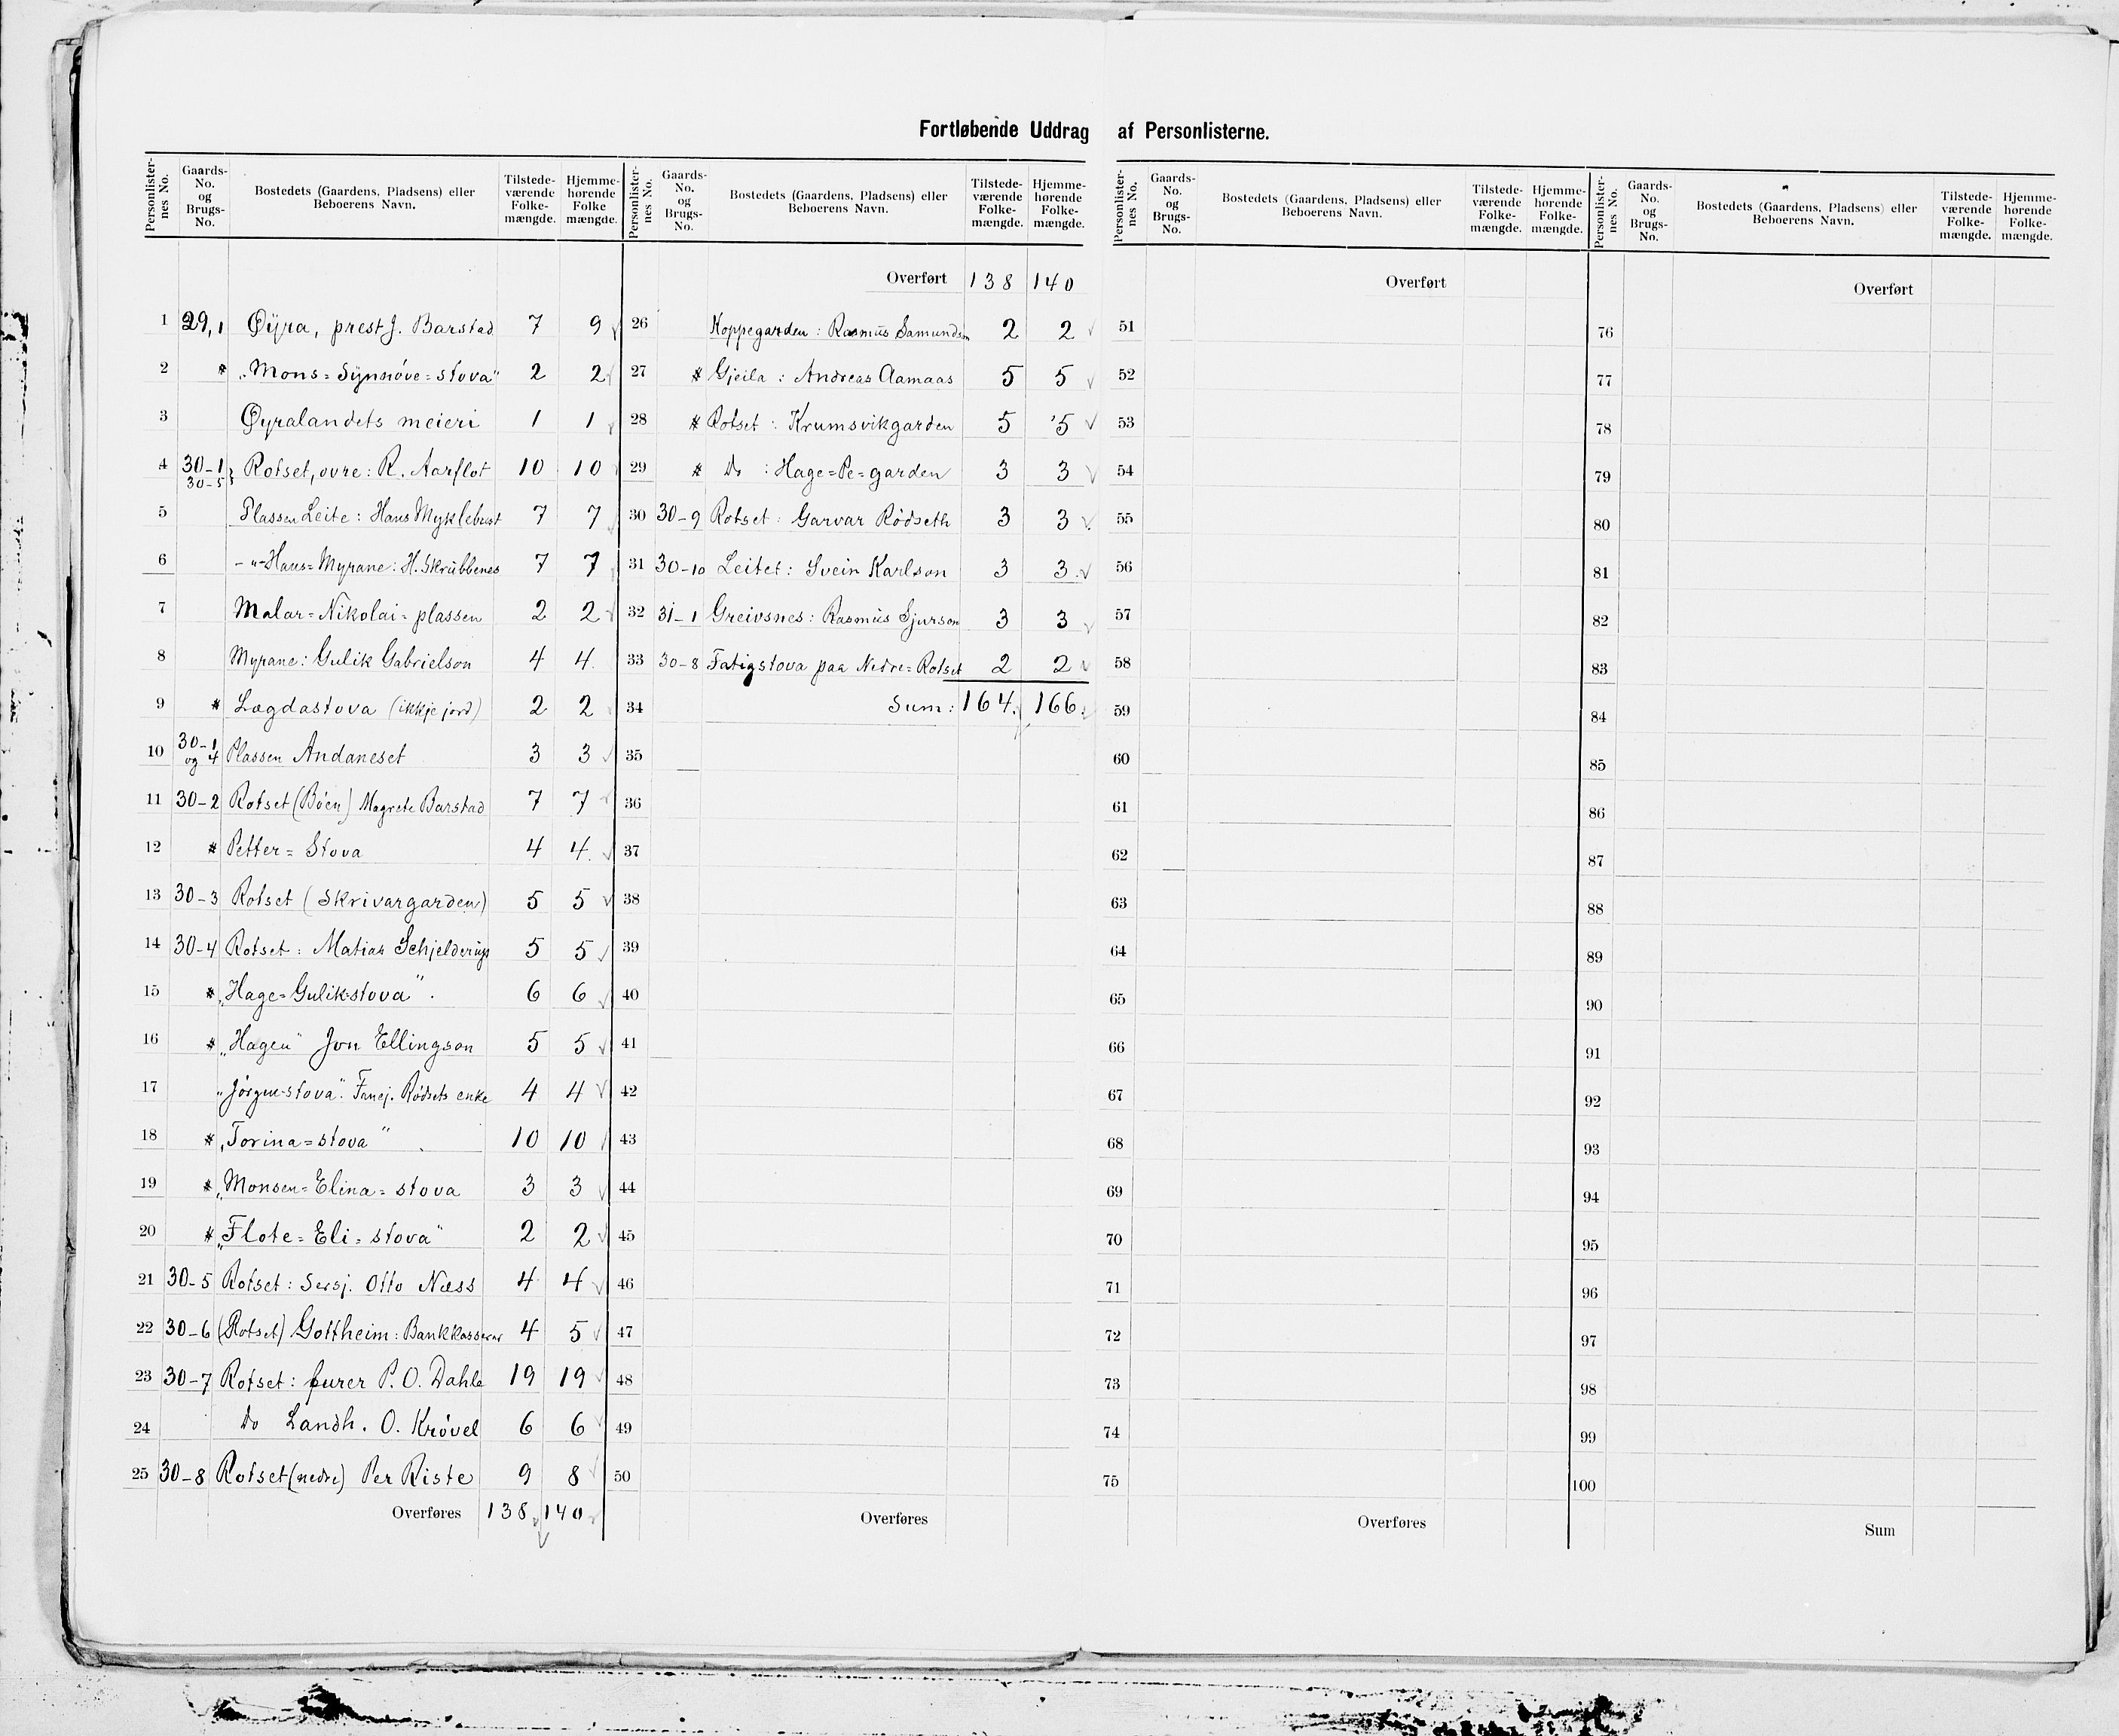 Fortløbende Uddrag af Personlisterne.
Personlister-nes No. Gaards-No. og Brugs-No. Bostedets (Gaardens, Pladsens) eller Beboerens Navn. Tilstede-værende Folke-mængde. Hjemme-hørende Folke mængde.
1 29,1 Øÿra, prest J. Barstad 7 9
2 * „Mons=Sÿnnóve=stova" 2 2
3 Øyralandets meieri 1 1
4 30-1 30-5 Rotset, øvre: R. Aarflot 10 10
5 Plassen Leite: Hans Myklebust 7 7
6 -"- Haus=Myrane: H. Skrubbenes 7 7
7 Malar=Nikolai=plassen 2 2
8 Myrane: Gulik Gabrielson 4 4
9 * Lægdastova (ikkje jord) 2 2
10 30-1 og 4 Plassen Andaneset 3 3
11 30-2 Rotset (Bóen) Magrete Barstad 7 7
12 * Petter=Stova 4 4
13 30-3 Rotset (Skrivargarden) 5 5
14 30-4 Rotset: Matias Schjelderup 5 5
15 * „Hage=Gulik=stova" 6 6
16 * „Hagen" Jon Ellingson 5 5
17 „Jórgen=stova". Ródsets enke 4 4
18 * „Torina=stova" 10 10
19 * „Monsen=Elina=stova 3 3
20 * „Flote=Eli=stova" 2 2
21 30-5 Rotset: Sersj. Otto Næss 4 4
22 30-6 (Rotset) Gottheim: Bankkasserar 4 5
23 30-7 Rotset: furer P. O. Dahle 19 19
24 Do Landh. O. Króvel 6 6
25 30-8 Rotset (nedre) Per Riste 9 8
Overføres 138 140
Personlister-nes No. Gaards-No. og Brugs-No. Bostedets (Gaardens, Pladsens) eller Beboerens Navn. Tilstede-værende Folke-mængde. Hjemme-hørende Folke-mængde.
Overført 138 140
26 Koppegarden: Rasmus Samundson 2 2
27 * Gjeila: Andreas Aamaas 5 5
28 * Rotset: Krumsvikgarden 5 5
29 * Do: Hage=Pe=garden 3 3
30 30-9 Rotset: Garvar Ródseth 3 3
31 30-10 Leitet: Svein Karlson 3 3
32 31-1 Greivsnes: Rasmus Sjurson 3 3
33 30-8 Fatigstova paa Nedre=Rotset 2 2
34 Sum: 164 166
35
36
37
38
39
40
41
42
43
44
45
46
47
48
49
50
Overføres
Personlister-nes No. Gaards-No. og Brugs-No. Bostedets (Gaardens, Pladsens) eller Beboerens Navn. Tilstede-værende Folke-mængde. Hjemme-hørende Folke-mængde.
Overført
51
52
53
54
55
56
57
58
59
60
61
62
63
64
65
66
67
68
69
70
71
72
73
74
75
Overføres
Personlister-nes No. Gaards-No. og Brugs-No. Bostedets (Gaardens, Pladsens) eller Beboerens Navn. Tilstede-værende Folke-mængde. Hjemme-hørende Folke-mængde.
Overført
76
77
78
79
80
81
82
83
84
85
86
87
88
89
90
91
92
93
94
95
96
97
98
99
100
Sum